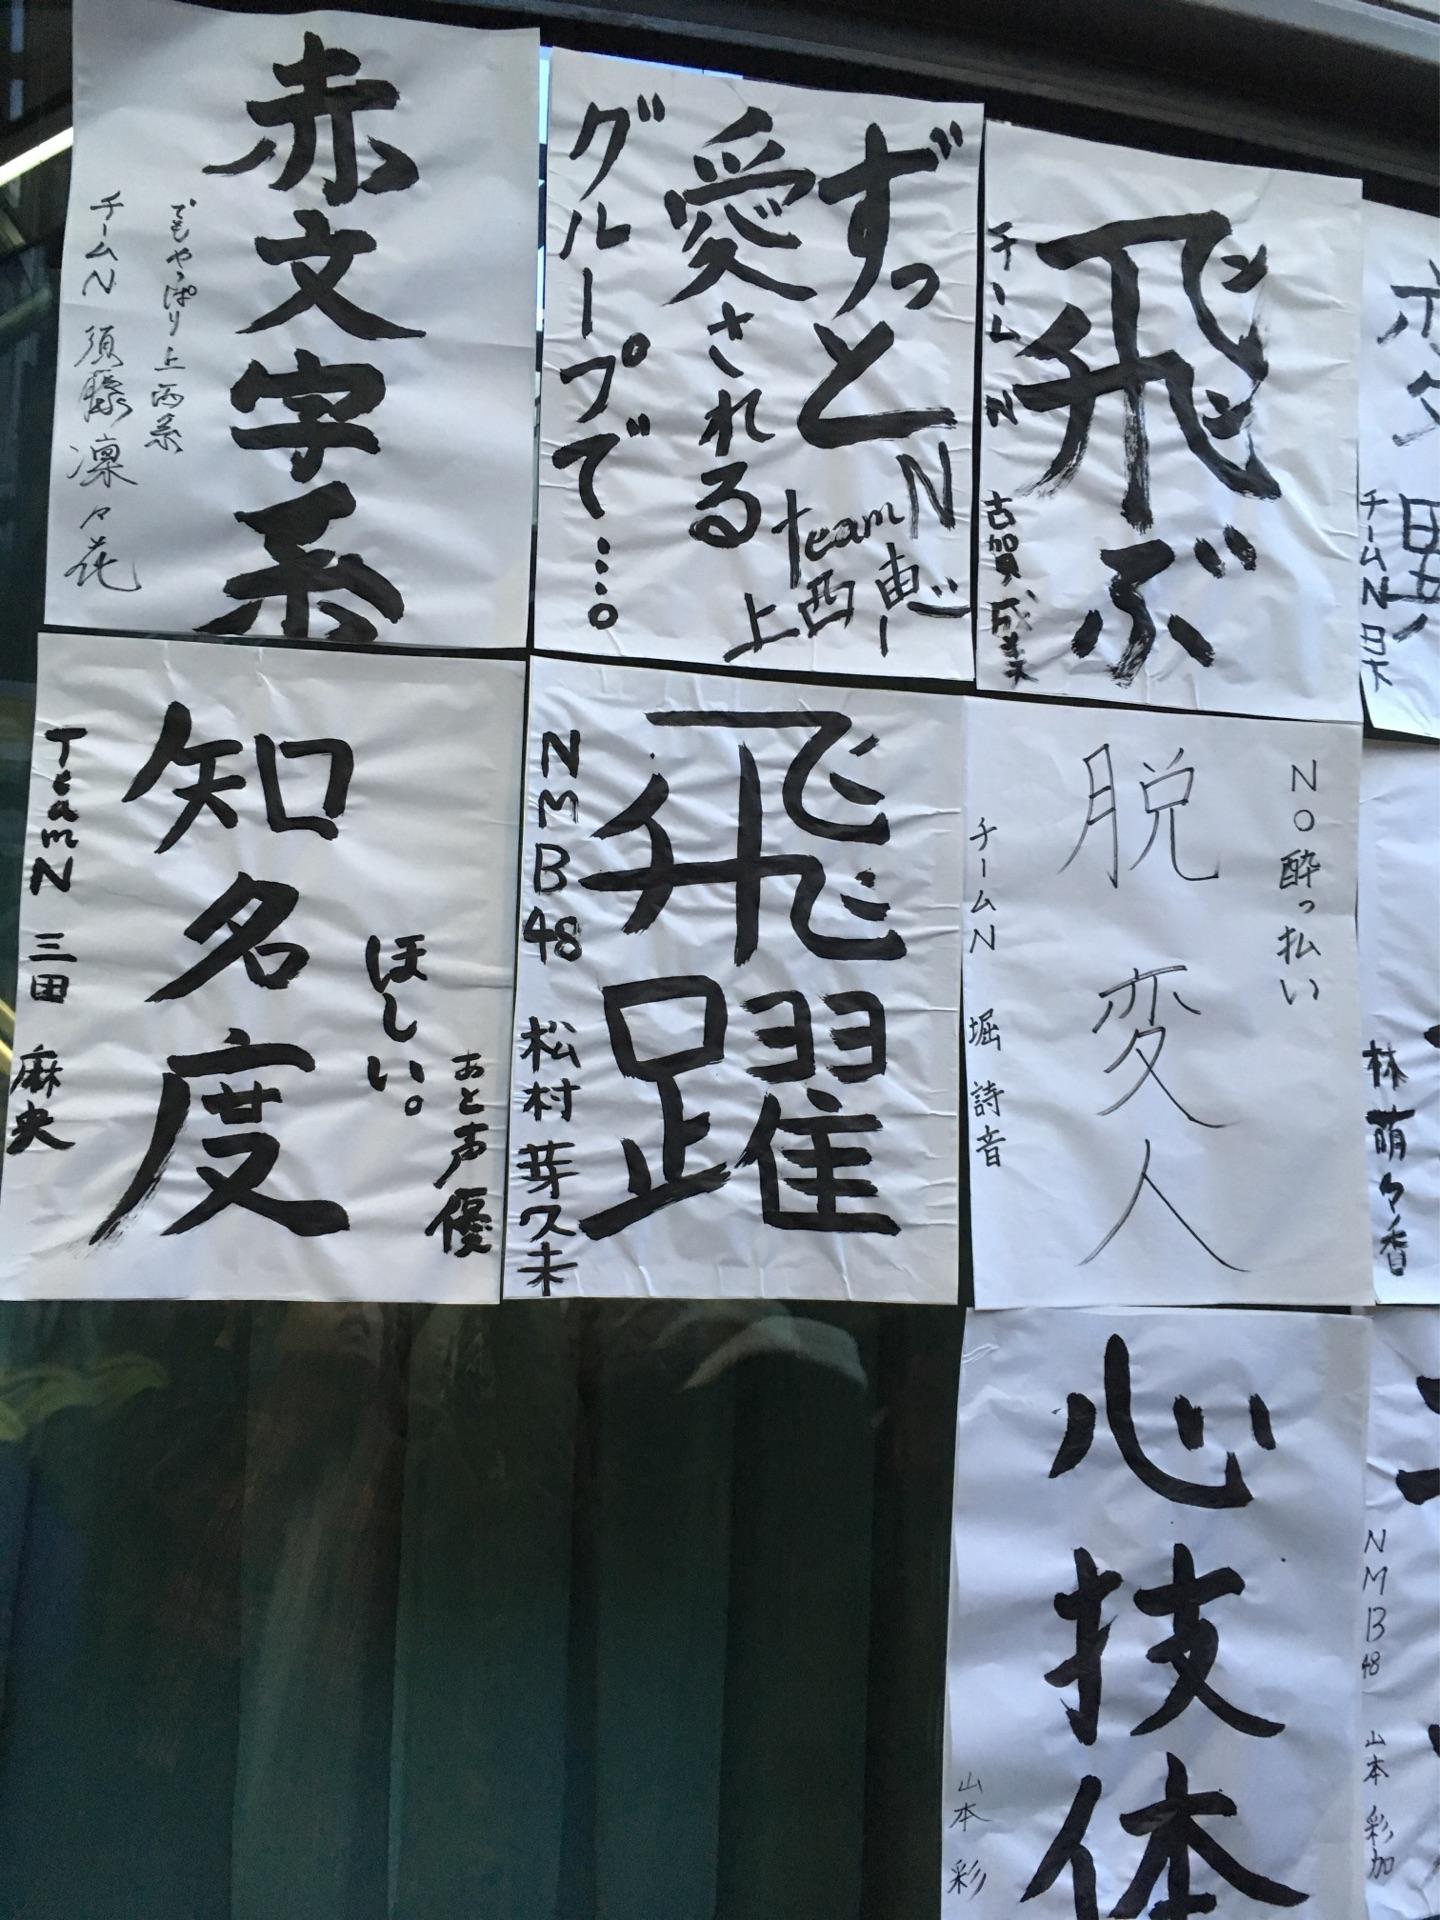 赤文字系
でもやっぱり上西系
チームN 須藤凜々花
ずっと
愛される
グループで…。
teamN
上西恵
飛ぶ
チームN 古賀成美
チームN 日下
知名度
ほしい。
あと声優
TeamN 三田 麻央
飛躍
NMB48 松村 芽久未
NO酔っ払い
脱変人
チームN 堀 詩音
林萌々香
心技体
山本 彩
NMB48 山本 彩加